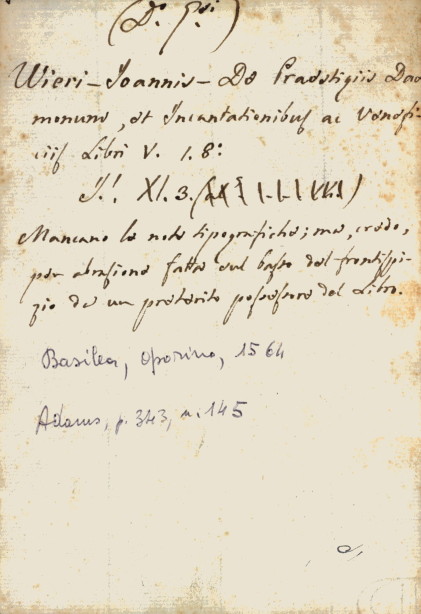 (D. )
Wieri - Joannis - De Praestigiis Dae
monum, et Incantationibus ac Venefi-
ciis Libri V. 1. 8:
XI. 3.
Mancano le note tipografiche; ma, credo,
per abrasione fatta sul basso del frontispi-
zio da un preterito possessore del Libro.
Basilea, Oporino, 1564
Adams, p. 343, n. 145